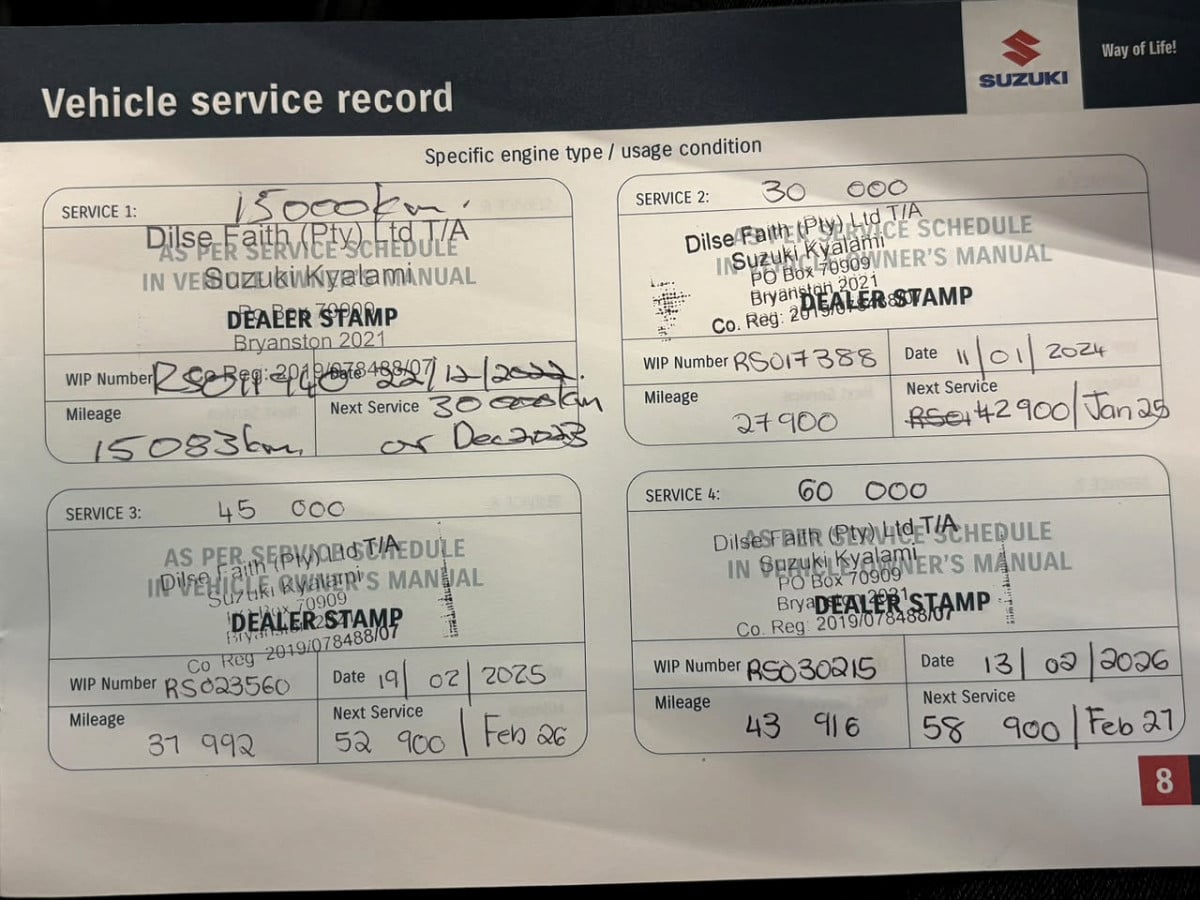 Vehicle service record
SUZUKI
Way of Life!
Specific engine type / usage condition
SERVICE 1: 15000km.
Dilse Faith (Pty) Ltd T/A
AS PER SERVICE SCHEDULE
IN VEHICLE OWNER'S MANUAL
Suzuki Kyalami
DEALER STAMP
Bryanston 2021
Co Reg: 2019/078488/07
WIP Number
Date 22/12/2022.
Mileage 15083km
Next Service 30000km
or Dec 2023
SERVICE 2: 30 000
Dilse Faith (Pty) Ltd T/A
AS PER SERVICE SCHEDULE
Suzuki Kyalami
IN VEHICLE OWNER'S MANUAL
PO Box 70909
Bryanston 2021
DEALER STAMP
Co. Reg: 2019/078488/07
WIP Number RS017388
Date 11/01/2024
Mileage 27900
Next Service 42900/Jan 25
SERVICE 3: 45 000
AS PER SERVICE SCHEDULE
Dilse Faith (Pty) Ltd T/A
IN VEHICLE OWNER'S MANUAL
Suzuki Kyalami
70909
DEALER STAMP
Co Reg 2019/078488/07
WIP Number RS023560
Date 19/02/2025
Mileage 37 992
Next Service 52 900/Feb 26
SERVICE 4: 60 000
Dilse Faith (Pty) Ltd T/A
AS PER SERVICE SCHEDULE
Suzuki Kyalami
IN VEHICLE OWNER'S MANUAL
PO Box 70909
Bryanston 2021
DEALER STAMP
Co. Reg: 2019/078488/07
WIP Number RS030215
Date 13/02/2026
Mileage 43 916
Next Service 58 900/Feb 27
8